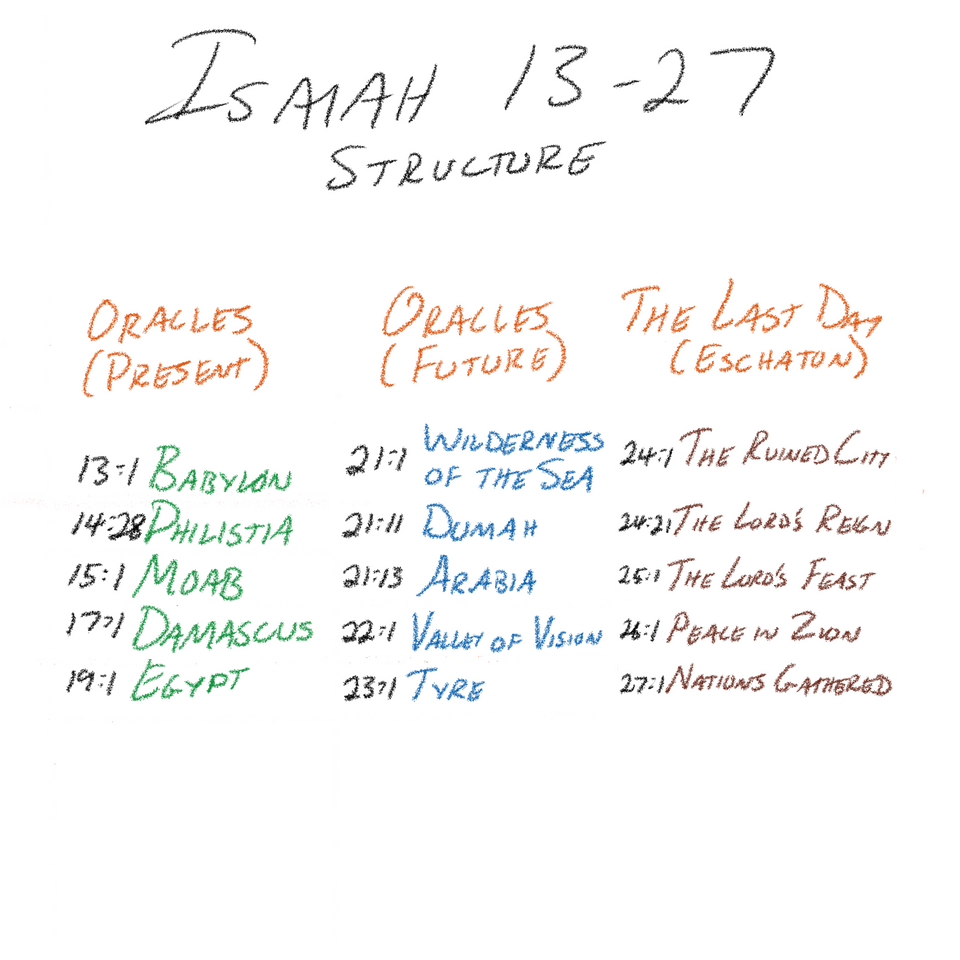 ISAIAH 13-27
STRUCTURE
ORACLES
(PRESENT)
13:1 BABYLON
14:28 PHILISTIA
15:1 MOAB
17:1 DAMASCUS
19:1 EGYPT
ORACLES
(FUTURE)
21:1 WILDERNESS
OF THE SEA
21:11 DUMAH
21:13 ARABIA
22:1 VALLEY OF VISION
23:1 TYRE
THE LAST DAY
(ESCHATON)
24:1 THE RUINED CITY
24:21 THE LORD'S REIGN
25:1 THE LORD'S FEAST
26:1 PEACE IN ZION
27:1 NATIONS GATHERED